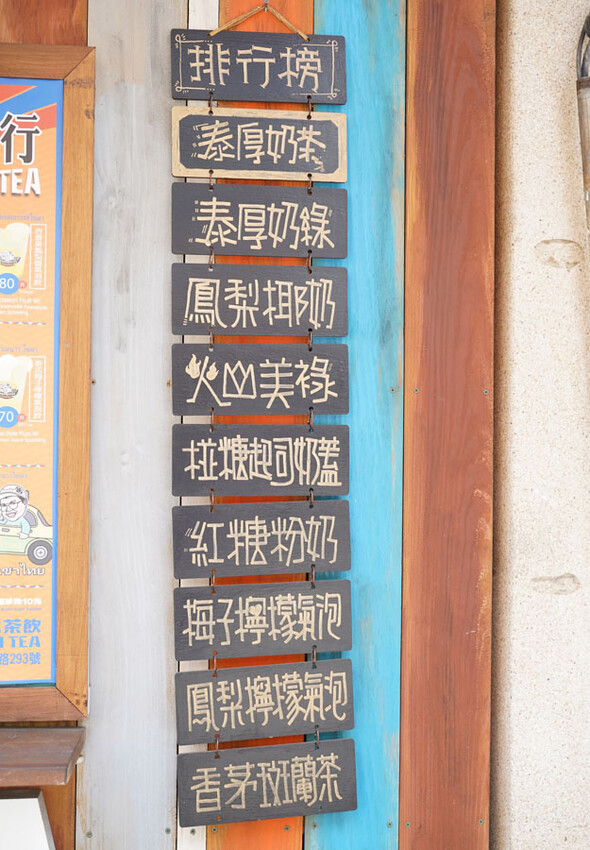 排行榜
泰厚奶茶
泰厚奶綠
鳳梨椰奶
火山美祿
椪糖起司奶蓋
紅糖粉奶
梅子檸檬氣泡
鳳梨檸檬氣泡
香茅斑蘭茶
行
TEA
80
70
茶飲
TEA
路293號